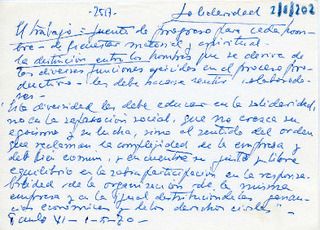 -2517-
Solidaridad 2/8/202
El trabajo: fuente de progreso para cada hom-
bre - de bienestar material y espiritual.
La distinción entre los hombres que se deriva de
las diversas funciones ejercidas en el proceso pro-
ductivo - les debe hacer sentir colaborado-
res -
Esta diversidad les debe educar en la solidaridad,
no en la separación social, que no crezca su
egoísmo y su lucha, sino el sentido del orden
que reclaman la complejidad de la empresa y
del bien común, y encuentre su justo y libre
equilibrio en la participación en la responsa-
bilidad de la organización de la misma
empresa y en la igual distribución de las ganan-
cias económicas y de los derechos civiles" -
Paulo VI - 1-5-70 -